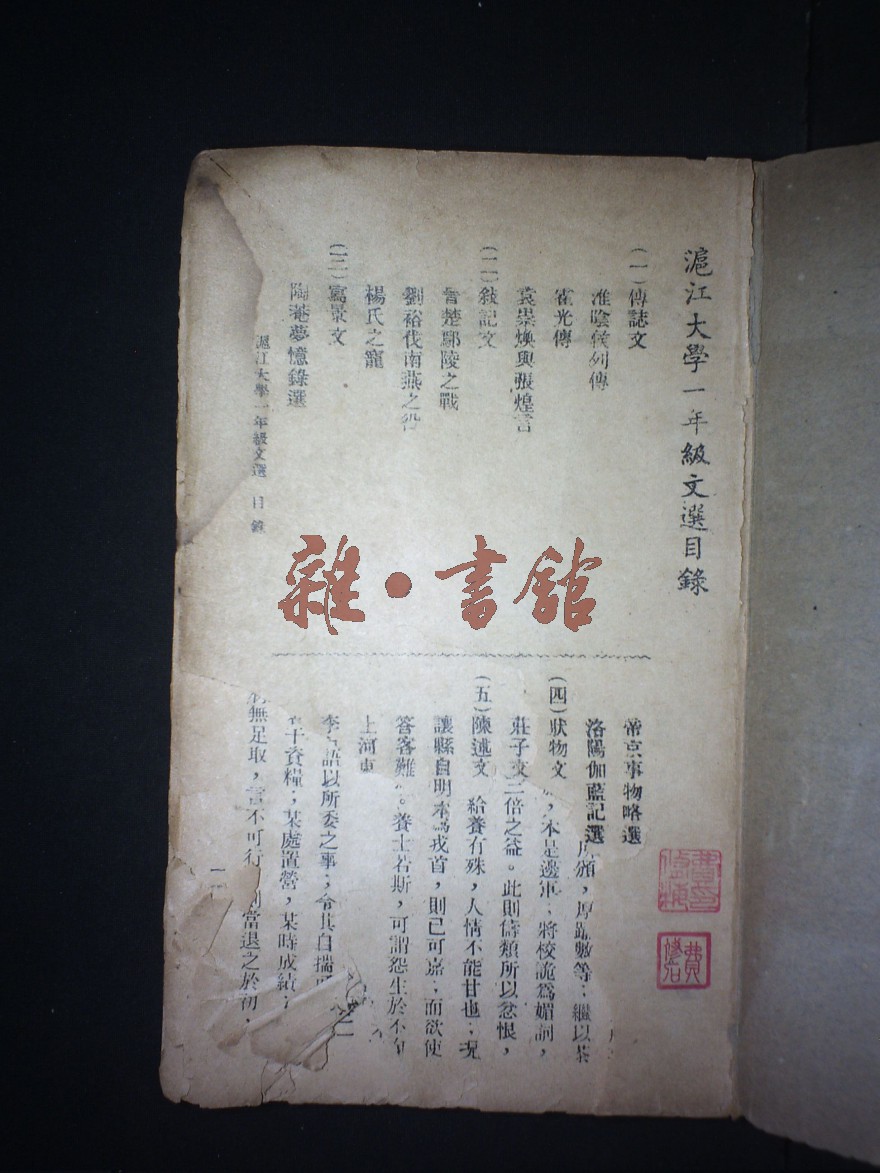 滬江大學一年級文選目錄
(一)傳誌文
淮陰侯列傳
霍光傳
袁崇煥與張煌言
(二)敍記文
晉楚鄢陵之戰
劉裕伐南燕之役
楊氏之寵
(三)寫景文
陶菴夢憶錄選
滬江大學一年級文選 目錄
雜·書館
帝京事物略選
洛陽伽藍記選
厚踰數等;繼以茶
(四)狀物文
,本是邊軍,將校詭為媚詞,
莊子文
三倍之益。此則儔類所以忿恨,
(五)陳述文
給養有殊,人情不能甘也;況
讓縣自明本
為戎首,則已可嘉;而欲使
答客難
。養士若斯,可謂怨生於不
上河
李
語以所委之事;令其自揣
若干資糧;某處置營,某時成績;
無足取,言不可行,則當退之於初,
費